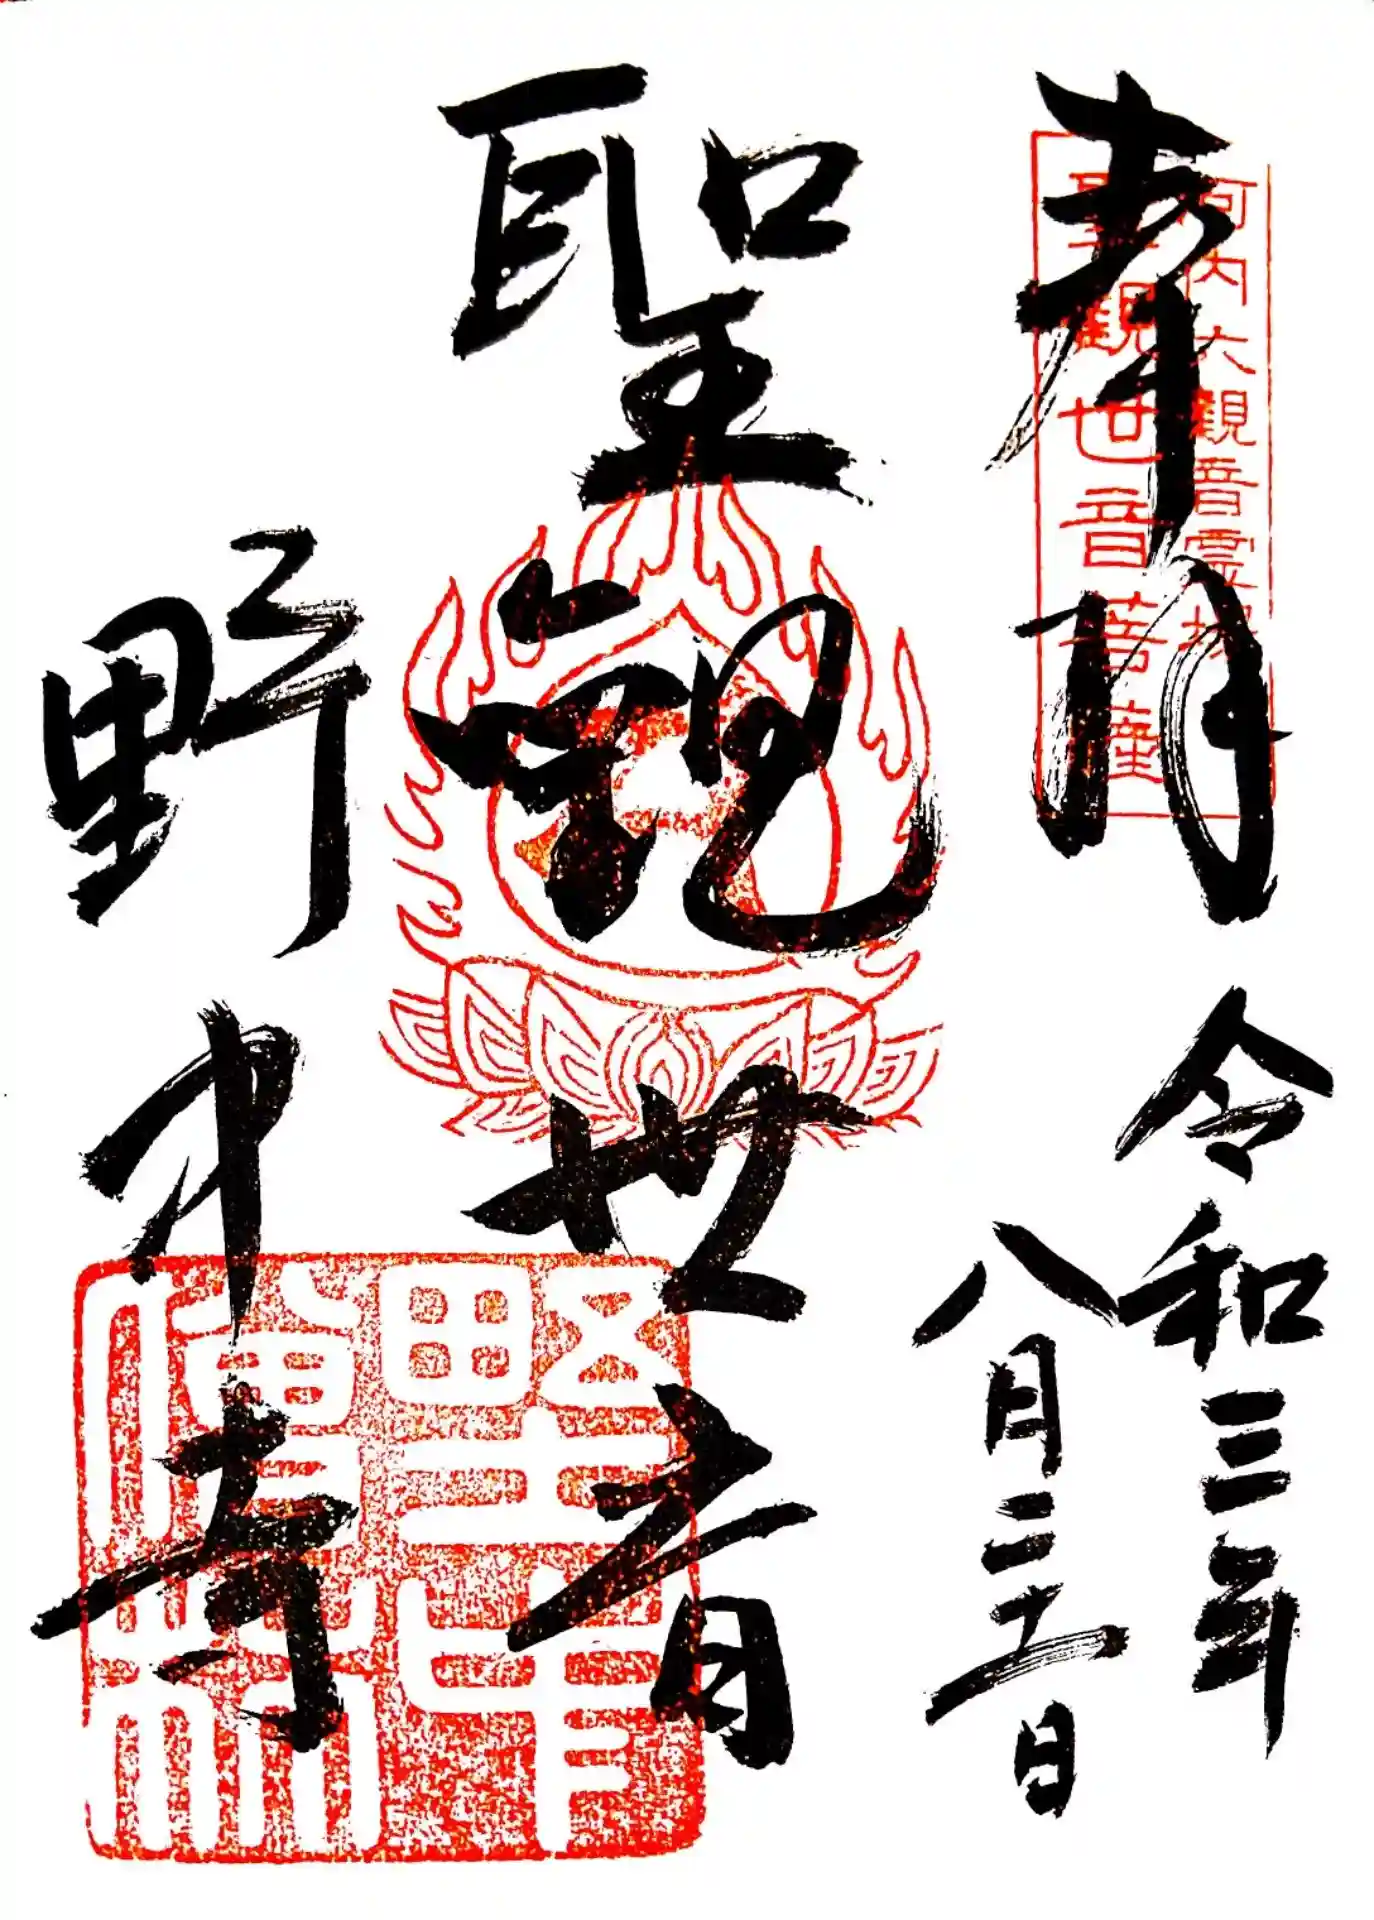 奉拝
河内六観音霊場
聖観世音菩薩
令和三年
八月二十一日
聖観世音
野中寺